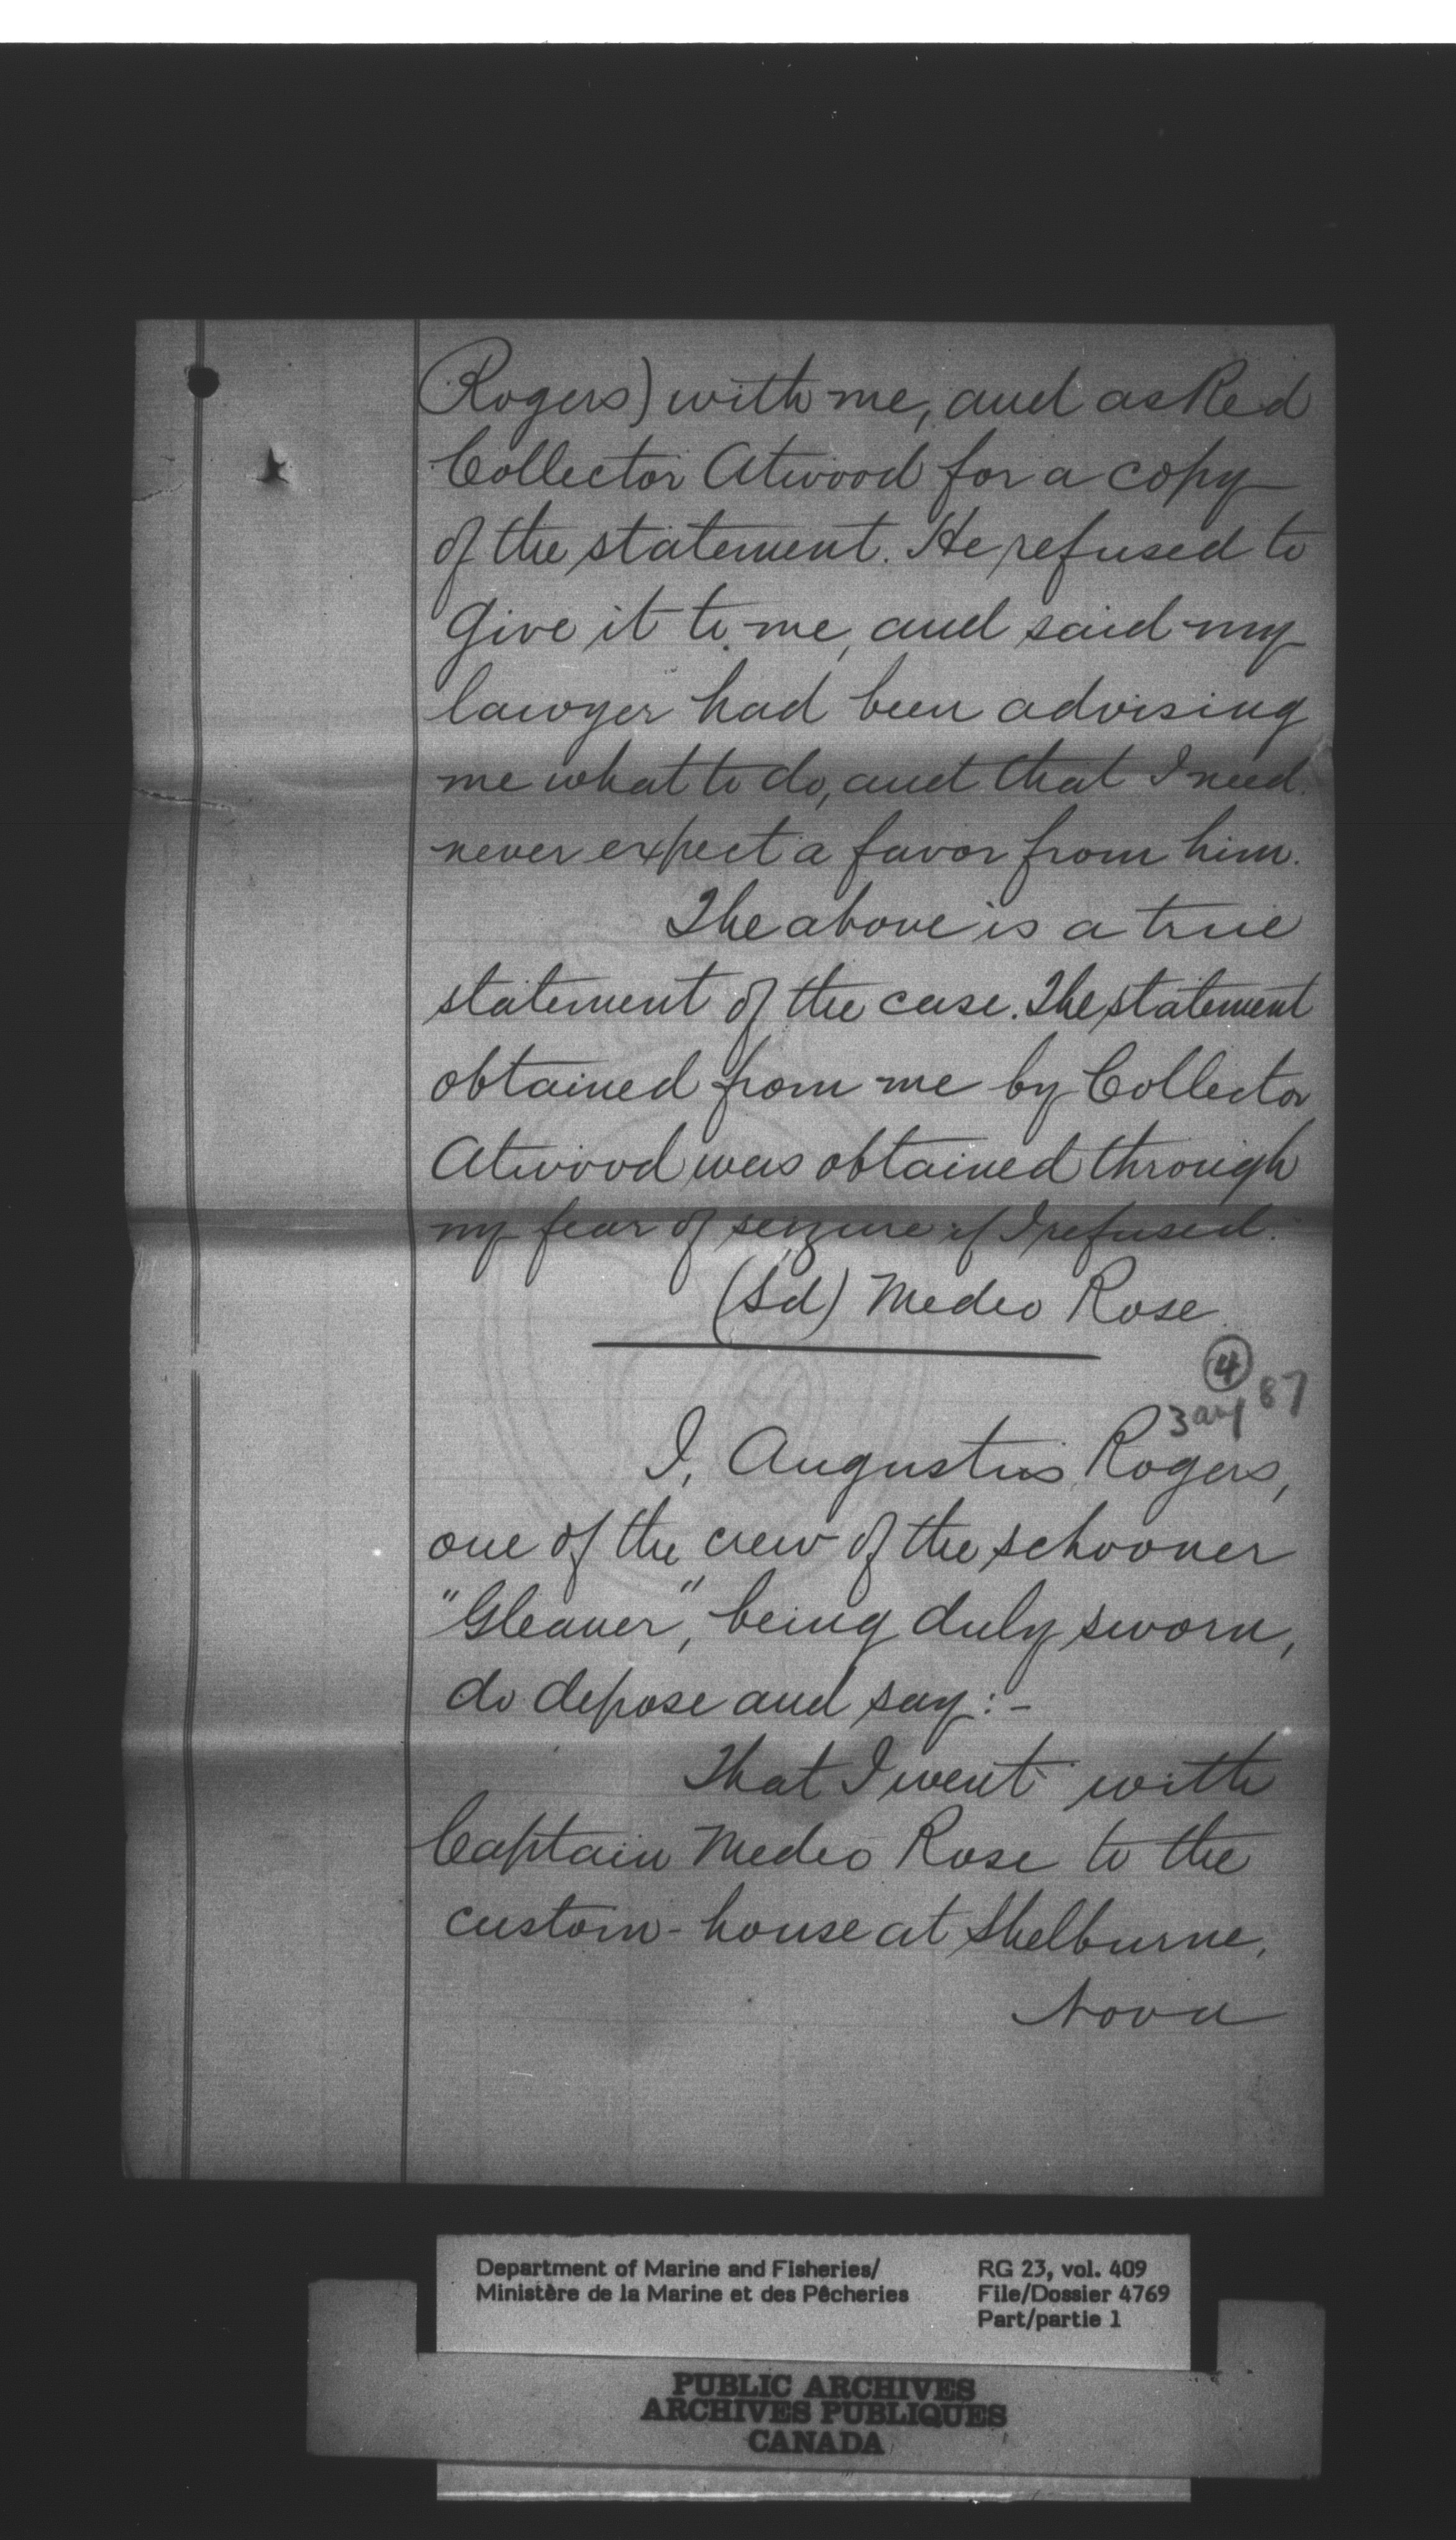 Rogers) with me, and asked
Collector Atwood for a copy
of the statement. He refused to
give it to me, and said my
lawyer had been advising
me what to do, and that I need
never expect a favor from him.
The above is a true
statement of the case. The statement
obtained from me by Collector
Atwood was obtained through
my fear of seizure if I refused.
(Sd) Medeo Rose.
4
3 aug 87
I, Augustus Rogers,
one of the crew of the schooner
"Gleaner", being duly sworn,
do depose and say:-
That I went with
Captain Medeo Rose to the
custom-house at Shelburne,
Nova
Department of Marine and Fisheries/
Ministère de la Marine et des Pêcheries
RG 23, vol. 409
File/Dossier 4769
Part/partie 1
PUBLIC ARCHIVES
ARCHIVES PUBLIQUES
CANADA